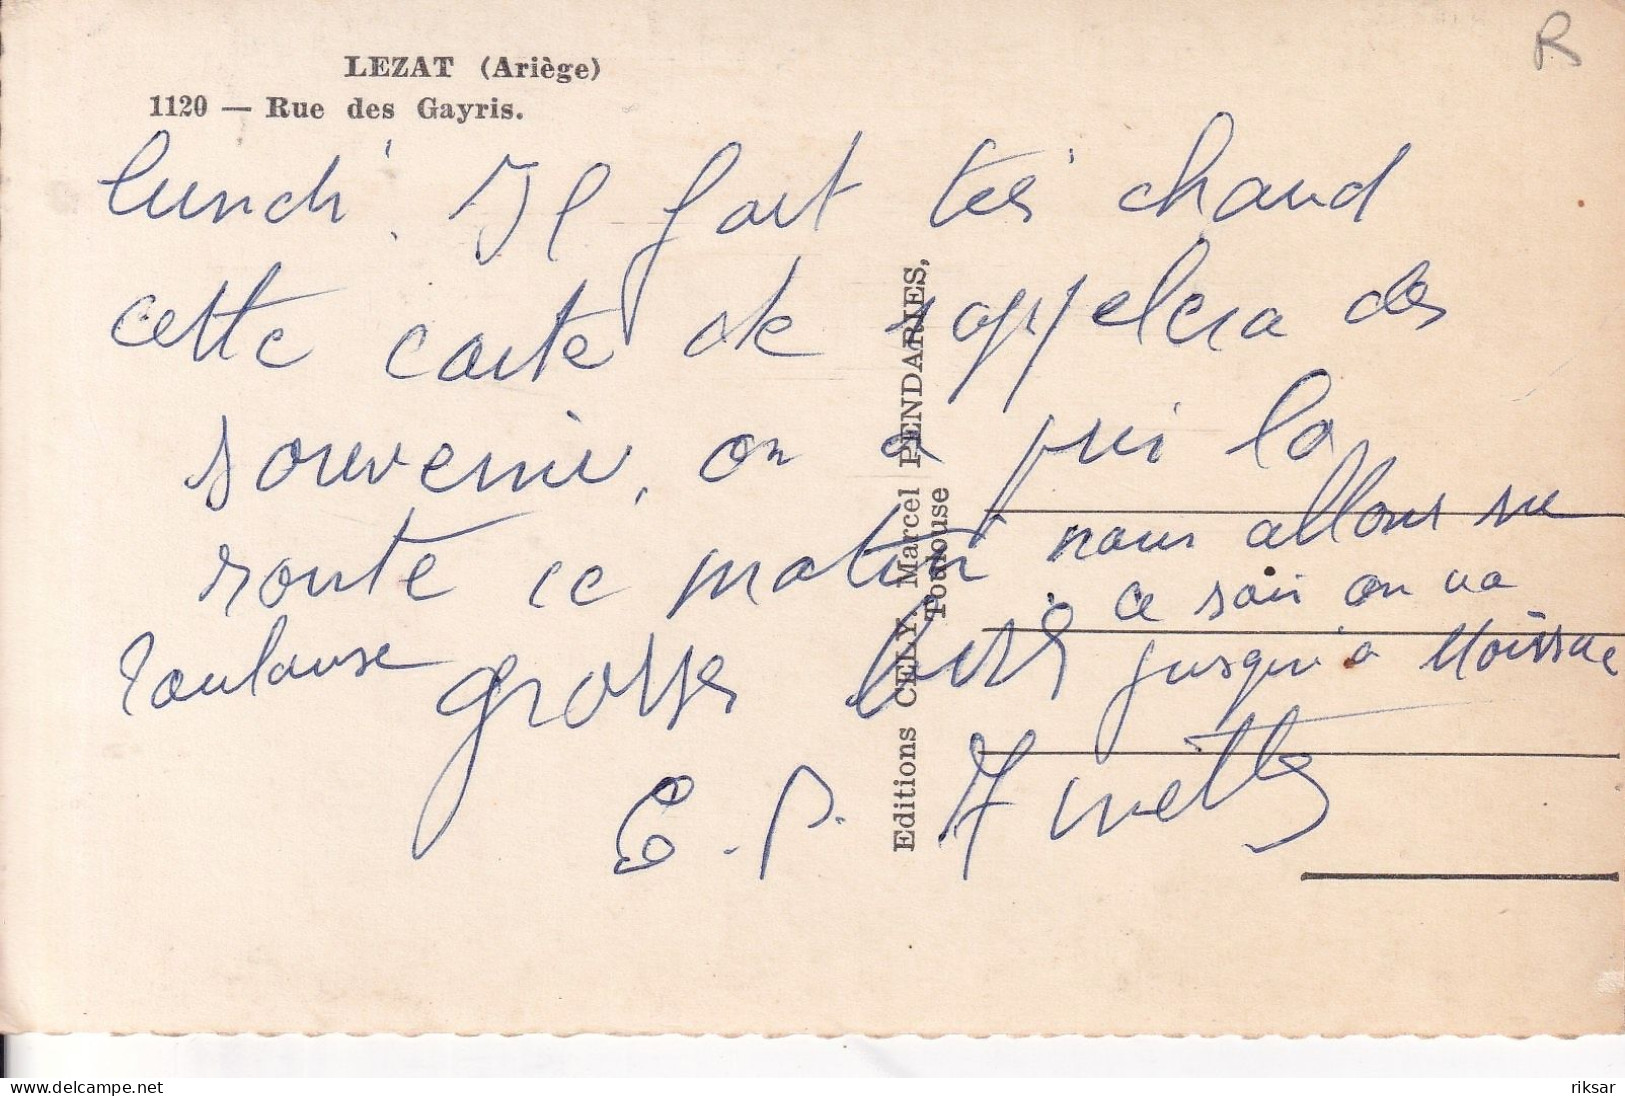 R
LEZAT (Ariège)
1120 — Rue des Gayris.
lundi. Il fait très chaud
cette carte te rappelera des
souvenir, on a pris la
route ce matin nous allons sur
Toulouse ce soir on va
jusqu'à Moissac
grosses bises
E. P. Annette
Editions CELY, Marcel PENDARIES,
Toulouse
www.delcampe.net
riksar